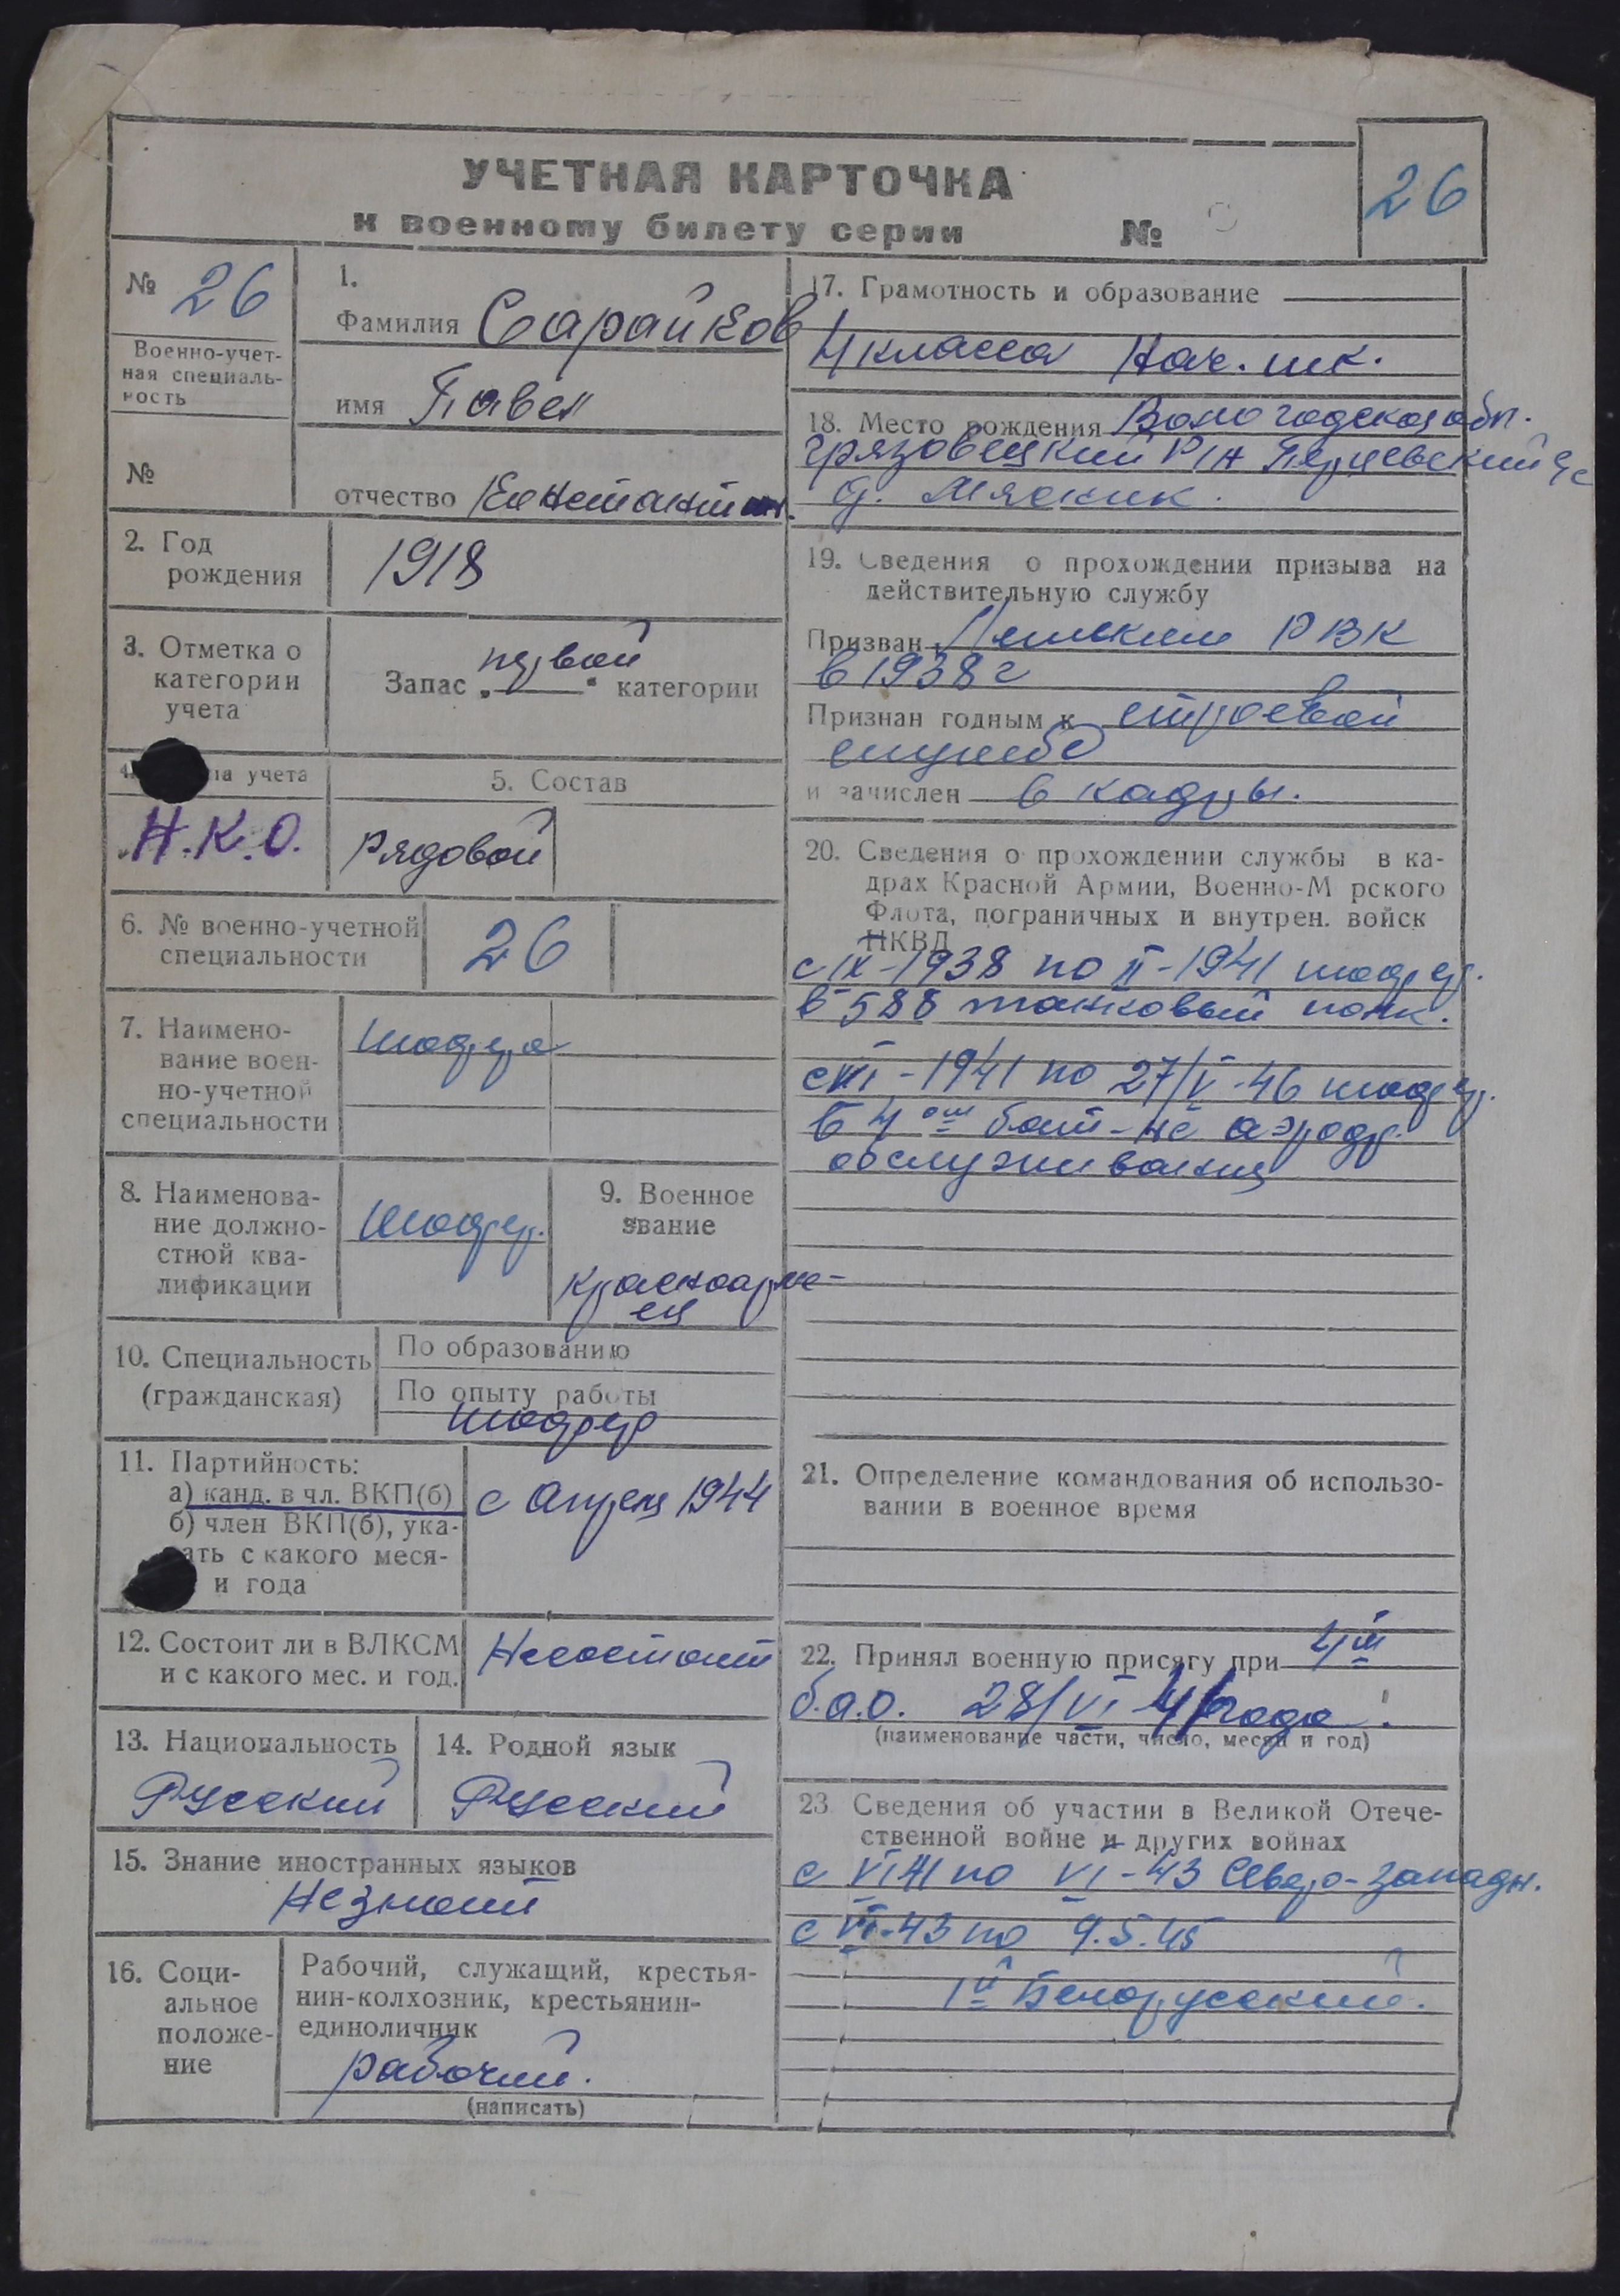 УЧЕТНАЯ КАРТОЧКА
к военному билету серии №
26
№ 26
Военно-учет-
ная специаль-
ность
№
1.
Фамилия Сарайков
имя Павел
отчество
2. Год
рождения
1918
3. Отметка о
категории
учета
первой
Запас „ “ категории
4. па учета
Н.К.О.
5. Состав
рядовой
6. № военно-учетной
специальности
26
7. Наимено-
вание воен-
но-учетной
специальности
Шофера
8. Наименова-
ние должно-
стной ква-
лификации
Шофер.
9. Военное
звание
красноарме-
ец
10. Специальность
(гражданская)
По образованию
По опыту работы
шофер
11. Партийность:
а) канд. в чл. ВКП(б)
б) член ВКП(б), ука-
ать с какого меся-
и года
с Апреля 1944
12. Состоит ли в ВЛКСМ
и с какого мес. и год.
Несостоит
13. Национальность
Русский
14. Родной язык
Русский
15. Знание иностранных языков
Незнает
16. Соци-
альное
положе-
ние
Рабочий, служащий, крестья-
нин-колхозник, крестьянин-
единоличник
рабочий.
(написать)
17. Грамотность и образование
4 класса Нач. шк.
18. Место рождения Вологодской обл.
Грязовецкий р/н с/с
д.
19. Сведения о прохождении призыва на
действительную службу
Призван РВК
в 1938 г
Признан годным к строевой
службе
и зачислен в кадры.
20. Сведения о прохождении службы в ка-
драх Красной Армии, Военно-М рского
Флота, пограничных и внутрен. войск
НКВД
с IX-1938 по II-1941 шофер.
в 588 танковый полк.
1941 по 27/V-46 шофер.
в 4ом бат-не аэродр.
обслуживания
21. Определение командования об использо-
вании в военное время
22. Принял военную присягу при 4м
б.а.о. 28/VI 41 года.
(наименование части, число, месяц и год)
23 Сведения об участии в Великой Отече-
ственной войне и других войнах
с VI 41 по VI-43 Северо-западн.
с VI-43 по 9.5.45
1й Белорусский.